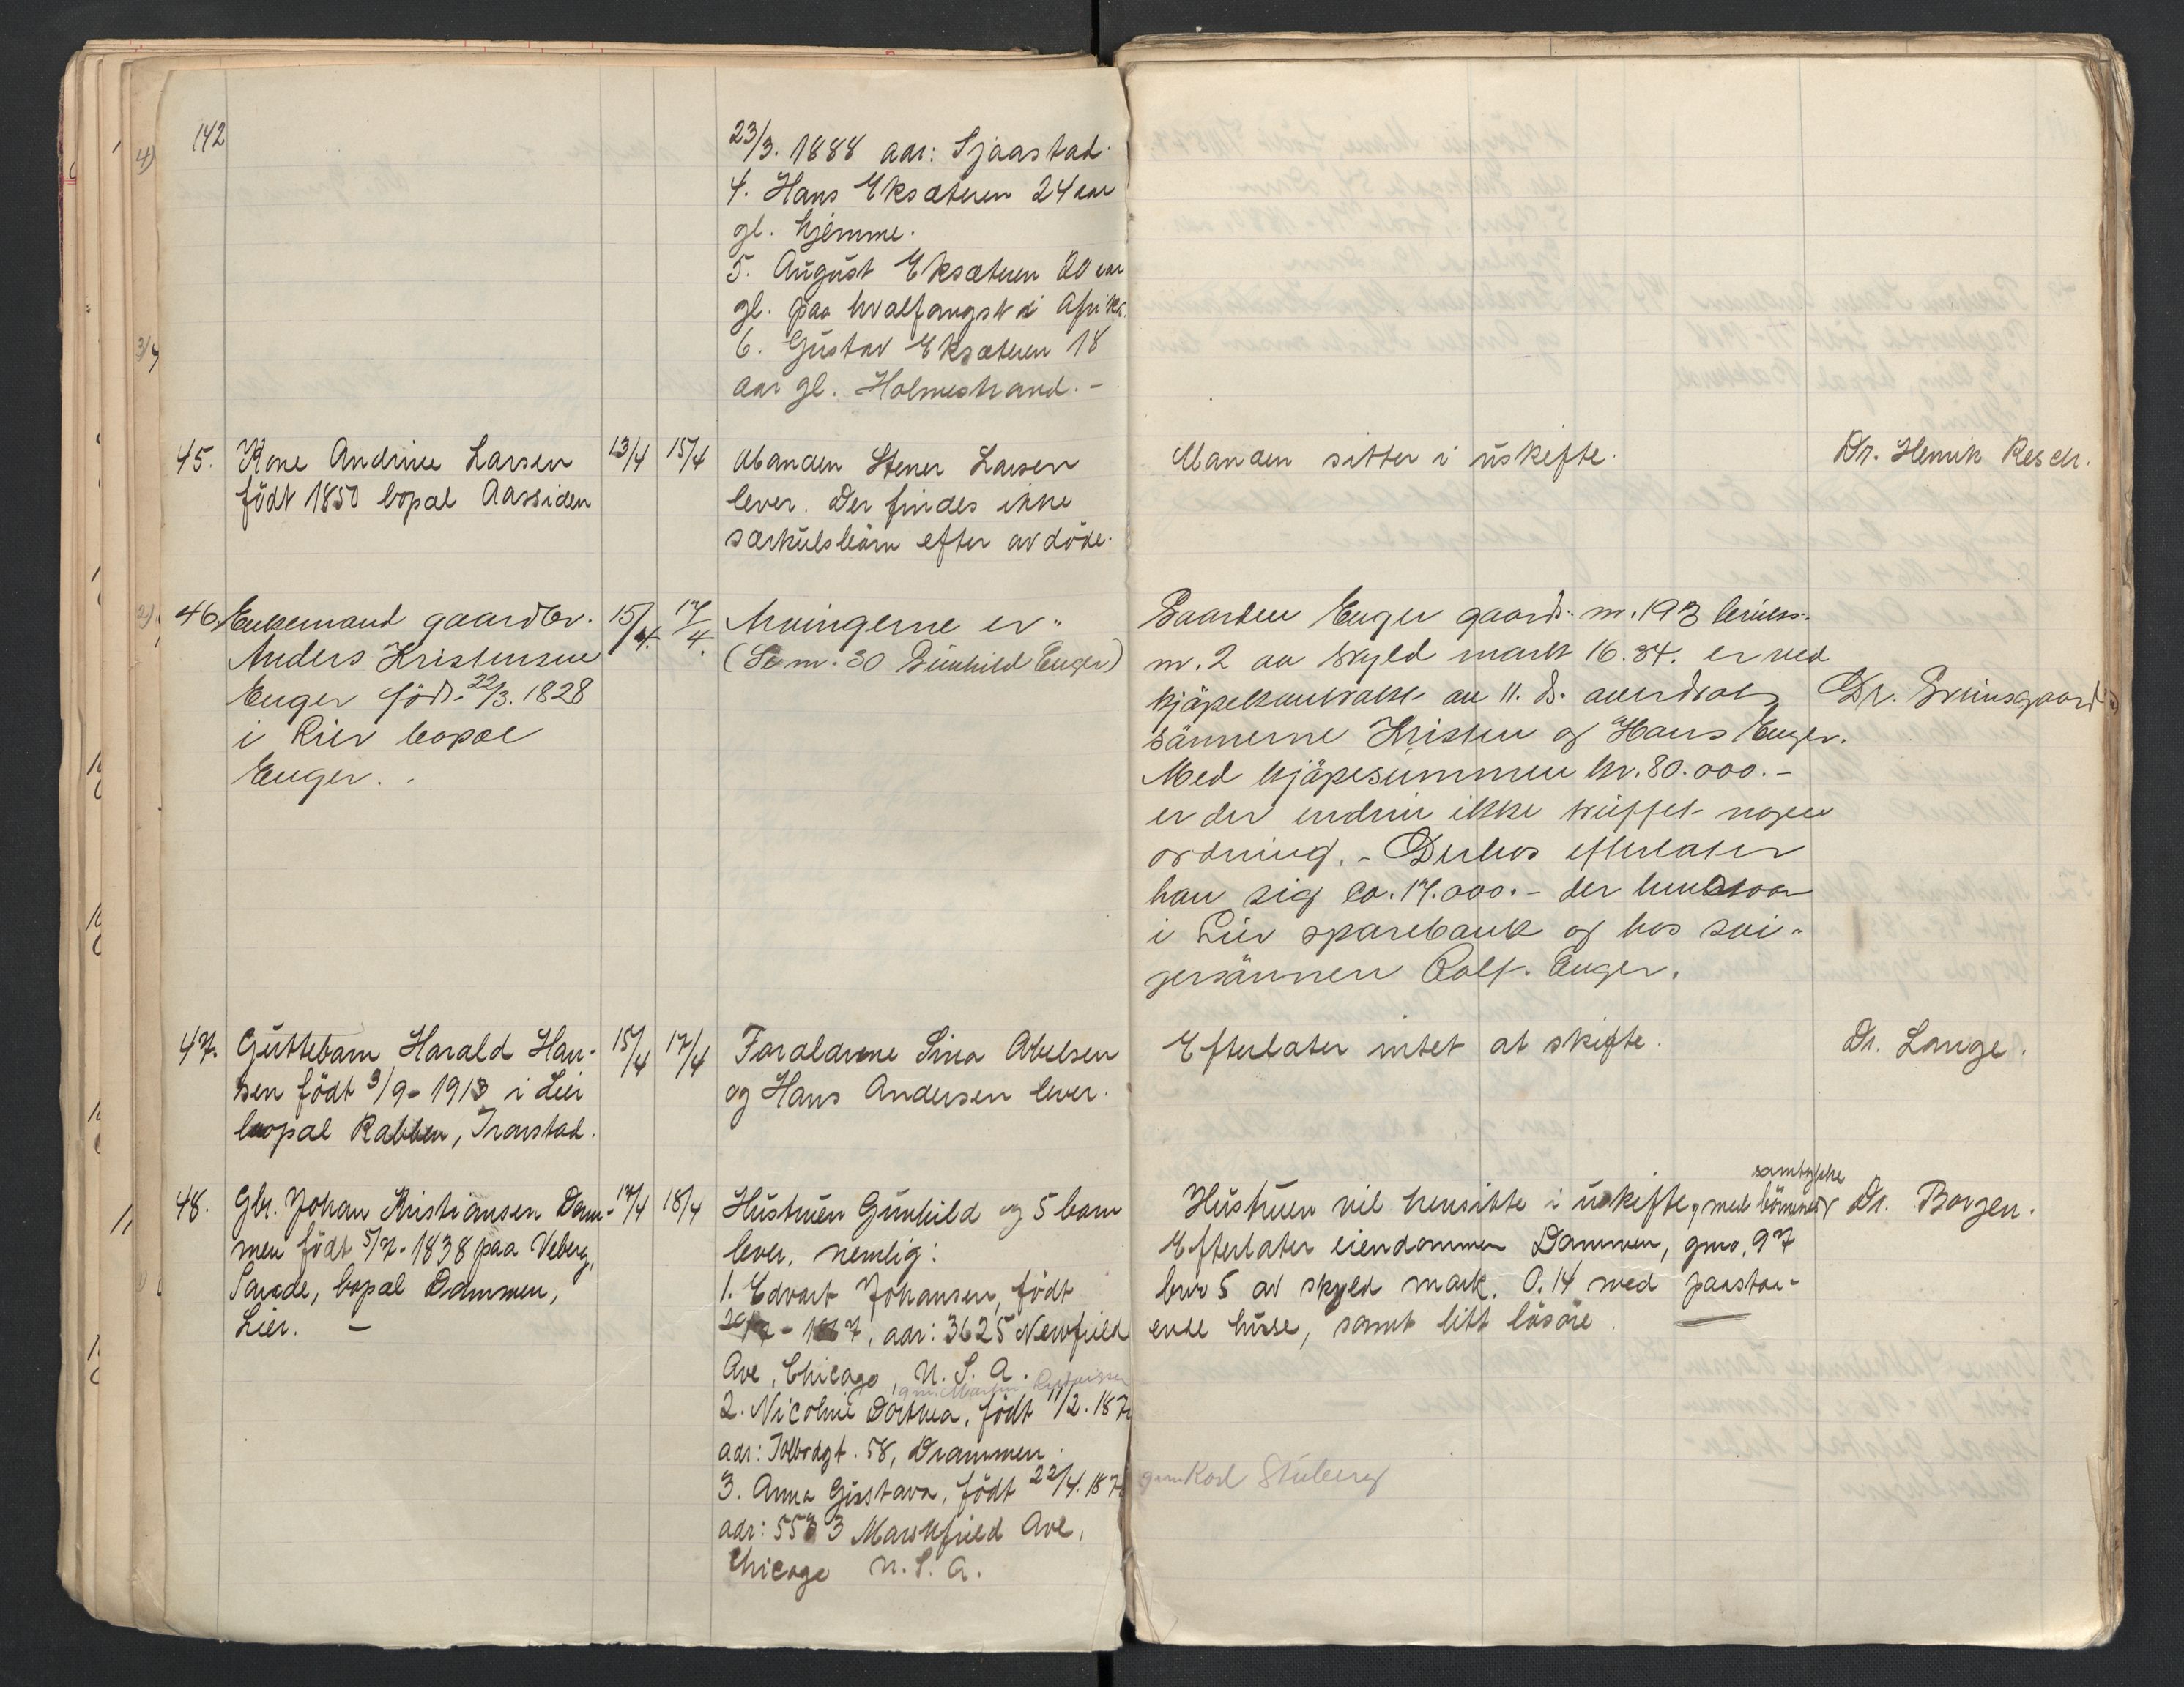 142
23/3. 1888 aar: Sjaastad.
4. Hans Eksæteren 24 aar
gl. hjemme.
5. August Eksæteren 20 aar
gl. paa hvalfangst i Afrika.
6. Gustav Eksæteren 18
aar gl. Holmestrand. -
45. Kone Andrine Larsen 13/4 15/4 Manden Stener Larsen
født 1850 bopæl Aassiden lever. Der findes ikke
særkulsbørn efter avdøde.
Manden sitter i uskifte. Dr. Henrik Resch.
46. Enkemand gaardbr. 15/4. 17/4. Arvingerne er
Anders Kristensen (Se nr. 30 Gunhild Enger)
Enger fød. 22/3. 1828
i Lier bopæl
Enger.
Gaarden Enger gaards-nr. 193 bruks-
nr. 2 av skyld mark 16.34. er ved
kjøpekontrakt av 11. ds. overdrat Dr. Svinsgaard
sønnerne Kristen og Hans Enger.
Med kjøpesummen kr. 80.000.-
er der endnu ikke truffet nogen
ordning. - Derhos efterlater
han sig ca. 17.000.- der
i Lier sparebank og hos svi-
gersønnen Rolf Enger.
47. Guttebarn Harald Han- 15/4 17/4 Forældrene Sina Abelsen
sen født 3/9-1913 i Lier og Hans Andersen lever.
bopæl Rabben, Transtad.
Efterlater intet at skifte. Dr. Lange.
48. Gbr. Johan Kristiansen Dam- 17/4 18/4 Hustruen Gunhild og 5 barn
men født 5/7-1838 paa Veberg, lever, nemlig:
Sande, bopæl Dammen, 1. Edvart Johansen, født
Lier. - 1867, adr: 3625 Newfield
Ave, Chicago, U.S.A.
gm. Martin
2. Nicoline Dorthea, født 11/2. 187
adr: Tolbodgt. 58, Drammen.
3. Anna Gustava, født 22/4. 187
adr: 5533 Marshfield Ave,
Chicago U.S.A.
samtykke
Hustruen vil hensitte i uskifte, med børnenes Dr. Borgen.
Efterlater eiendommen Dammen, gno. 97
bno 5 av skyld mark. 0.14 med paastaa-
ende huse, samt litt løsøre.
gm Karl Stuberg